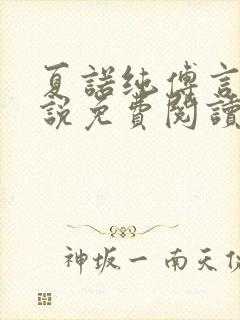 夏諾純傅言
說免費閱讀
神坂一 南天